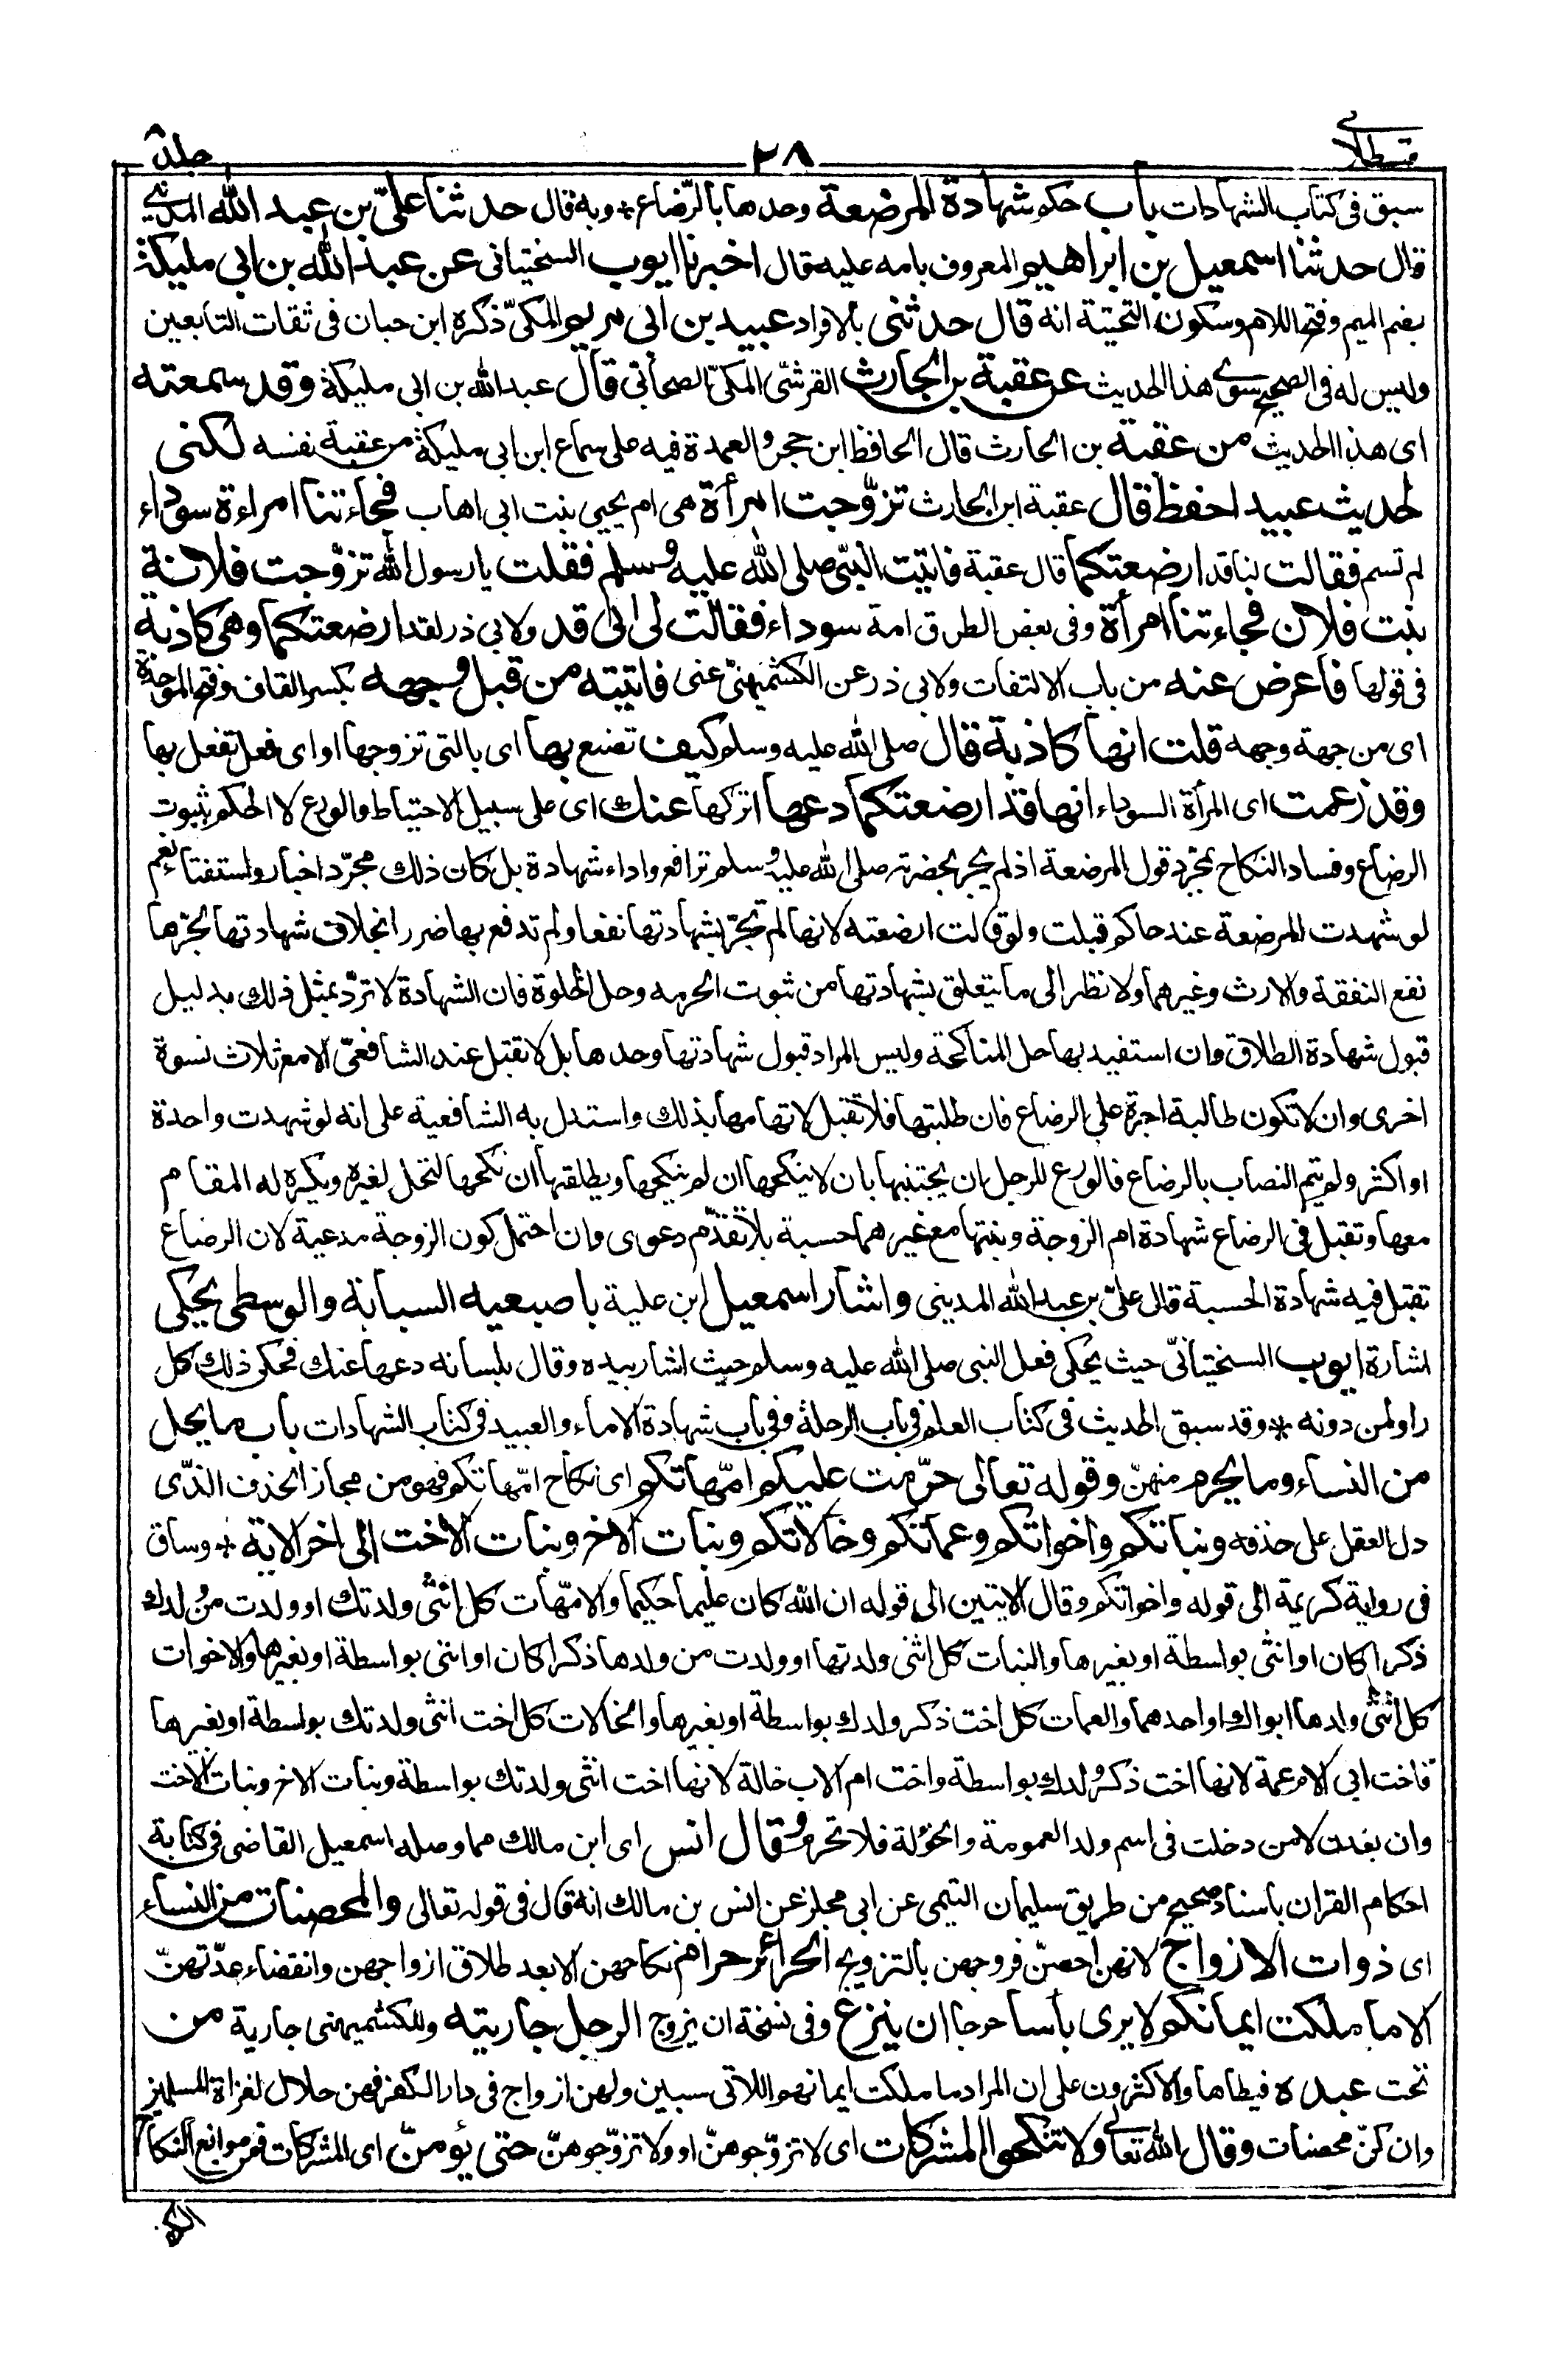 قسطلانی
٢٨
جلد ٨
سبق فى كتاب الشهادات باب حكم شهادة المرضعة وحدها بالرّضاع * وبه قال حدثنا علىّ بن عبد الله المدينى
قال حدثنا اسمعيل بن ابراهيم المعروف بامه عليه قال اخبرنا ايوب السختيانى عن عبد الله بن ابى مليكة
بضم الميم وفتح اللام وسكون التحتية انه قال حدثنى بالافراد عبيد بن ابى مريم المكىّ ذكره ابن حبان فى ثقات التابعين
وليس له فى الصحيح سوى هذا الحديث عن عقبة بن الحارث القرشىّ المكىّ الصحابّى قال عبد الله بن ابى مليكة وقد سمعته
اى هذا الحديث من عقبة بن الحارث قال الحافظ ابن حجر والعمدة فيه على سماع ابن ابى مليكة من عقبة نفسه لكنى
لحديث عبيد احفظ قال عقبة ابن الحارث تزوّجت امرأة هى ام يحيى بنت ابى اهاب فجاءتنا امراءة سوداء
لم تسم فقالت لنا قد ارضعتكما قال عقبة فاتيت النبّى صلى الله عليه وسلم فقلت يا رسول الله تزوّجت فلانة
بنت فلان فجاءتنا امرأة وفى بعض الطرق امة سوداء فقالت لى انى قد ولابى ذر لقد ارضعتكما وهى كاذبة
فى قولها فاعرض عنه من باب الالتفات ولابى ذر عن الكشميهنىّ عنى فاتيته من قبل وجهه بكسر القاف وفتح الموحدة
اى من جهة وجهه قلت انها كاذبة قال صلى الله عليه وسلم كيف تصنع بها اى بالتى تزوجها او اى فعل تفعل بها
وقد زعمت اى المرأة السوداء انها قد ارضعتكما دعها اتركها عنك اى على سبيل الاحتياط والورع لا الحكم بثبوت
الرضاع وفساد النكاح بمجرّد قول المرضعة اذ لم يجر بحضرته صلى الله عليه وسلم ترافع واداء شهادة بل كان ذلك مجرّد اخبار واستفتاء نعم
لو شهدت المرضعة عند حاكم قبلت ولو قالت ارضعته لانها لم تجرّ بشهادتها نفعا ولم تدفع بها ضررا بخلاف شهادتها بجرّها
نفع النفقة والارث وغيرهما ولا نظر الى ما يتعلق بشهادتها من ثبوت الحرمه وحل الخلوة فان الشهادة لا تردّ بمثل ذلك بدليل
قبول شهادة الطلاق وان استفيد بها حل المناكحة وليس المراد قبول شهادتها وحدها بل لا تقبل عند الشافعىّ الا مع ثلاث نسوة
اخرى وان لا تكون طالبة اجرة على الرضاع فان طلبتها فلا تقبل لاتهامها بذلك واستدل به الشافعية على انه لو شهدت واحدة
او اكثر ولم يتم النصاب بالرضاع فالورع للرجل ان يجتنبها بان لا ينكحها ان لم ينكحها ويطلقها ان نكحها لتحل لغيره ويكره له المقام
معها وتقبل فى الرضاع شهادة ام الزوجة وبنتها مع غيرهما حسبة بلا تقدّم دعوى وان احتمل كون الزوجة مدعية لان الرضاع
تقبل فيه شهادة الحسبة قال علىّ بن عبد الله المدينى واشار اسمعيل ابن علية باصبعيه السبابة والوسطى يحكى
اشارة ايوب السختيانّى حيث يحكى فعل النبى صلى الله عليه وسلم حيث اشار بيده وقال بلسانه دعها عنك فحكى ذلك كل
راو لمن دونه * وقد سبق الحديث فى كتاب العلم فى باب الرحلة وفى باب شهادة الاماء والعبيد فى كتاب الشهادات باب ما يحل
من النساء وما يحرم منهنّ وقوله تعالى حرّمت عليكم امّهاتكم اى نكاح امّهاتكم فهو من مجاز الحذف الذّى
دل العقل على حذفه وبناتكم واخواتكم وعماتكم وخالاتكم وبنات الاخ وبنات الاخت الى اخر الاية * وساق
فى رواية كريمة الى قوله واخواتكم وقال الايتين الى قوله ان الله كان عليما حكيما والامّهات كل انثى ولدتك او ولدت من ولدك
ذكرا كان او انثى بواسطة او بغيرها والبنات كل انثى ولدتها او ولدت من ولدها ذكرا كان او انثى بواسطة او بغيرها والاخوات
كل انثى ولدها ابواك او احدهما والعمات كل اخت ذكر ولدك بواسطة او بغيرها والخالات كل اخت انثى ولدتك بواسطة او بغيرها
فاخت ابى الام عمة لانها اخت ذكر ولدك بواسطة واخت ام الاب خالة لانها اخت انثى ولدتك بواسطة وبنات الاخ وبنات الاخت
وان بعدت لا من دخلت فى اسم ولد العمومة والخؤلة فلا تحرم وقال انس اى ابن مالك مما وصله اسمعيل القاضى فى كتابة
احكام القران باسناد صحيح من طريق سليمان التيمى عن ابى مجلز عن انس بن مالك انه قال فى قوله تعالى والمحصنات من النساء
اى ذوات الازواج لانهن احصنّ فروجهن بالتزويج الحرائر حرام نكاحهن الا بعد طلاق ازواجهن وانقضاء عدّتهنّ
الا ما ملكت ايمانكم لا يرى بأسا حرجا ان ينزع وفى نسخة ان يزوج الرجل جاريته وللكشميهنى جارية من
تحت عبده فيطاها والاكثرون على ان المراد ما ملكت ايمانهم اللاتى سبين ولهن ازواج فى دار الكفر فهن حلال لغزاة المسلمين
وان كنّ محصنات وقال الله تعالى ولا تنكحوا المشركات اى لا تزوّجوهنّ او ولا تزوّجوهنّ حتى يؤمنّ اى المشركات فمن موانع النكاح